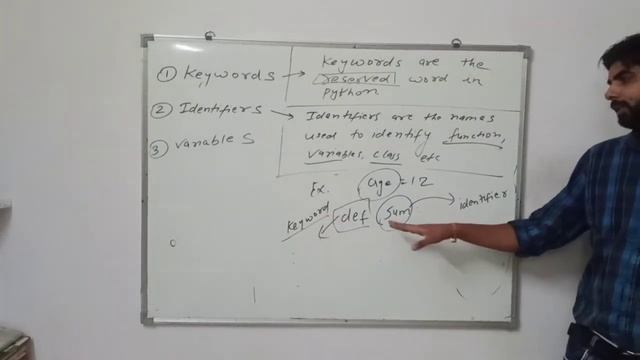 ① Keywords → Keywords are the
reserved word in
python
② Identifiers → Identifiers are the names
used to identify function,
variables, class etc
③ variables
Ex. age = 12
Keyword def sum identifier